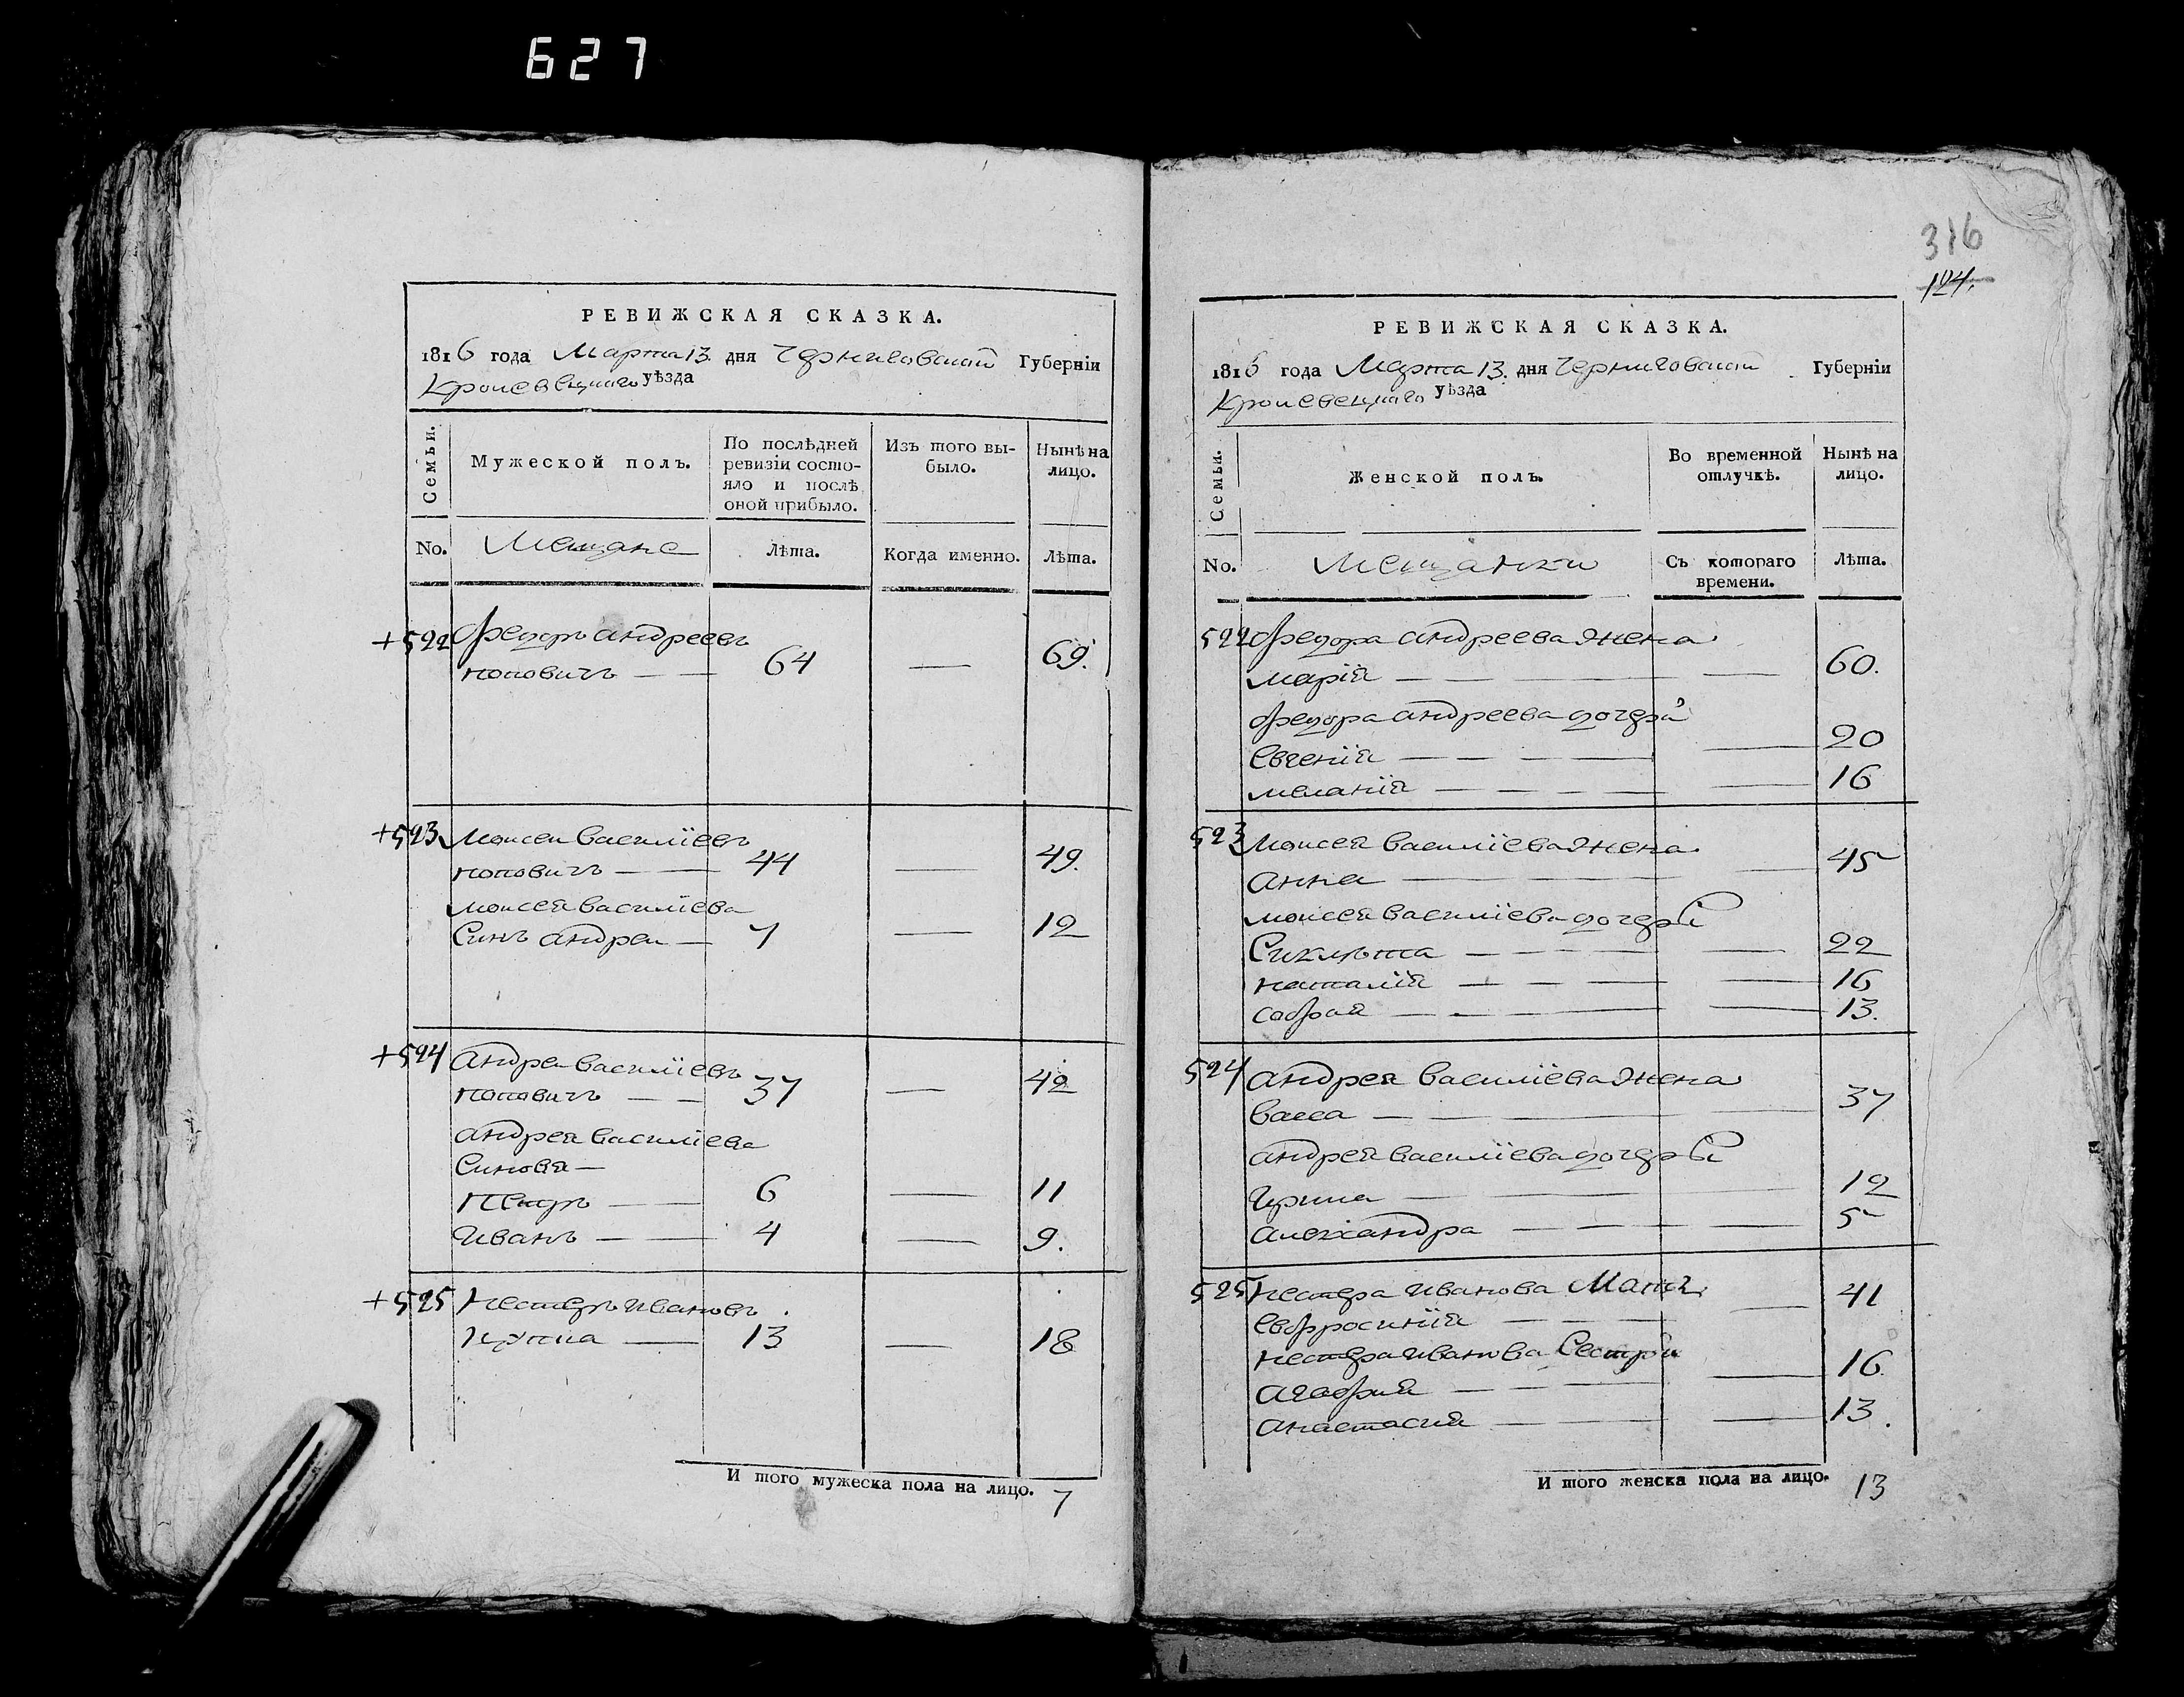 627
РЕВИЖСКАЯ СКАЗКА.
1816 года Марта 13. дня Черниговской Губерніи
Кролевецкаго уѣзда
Семьи.
Мужеской полъ.
По послѣдней ревизіи состояло и послѣ оной прибыло.
Изъ того выбыло.
Нынѣ на лицо.
No. Мещане Лѣта. Когда именно. Лѣта.
+522 Федоръ андреевъ
поповичъ — 64 — 69.
+523 Моисеи василіевъ
поповичъ — 44 — 49.
моисея василіева
Синъ андреи — 7 — 12
+524 Андреи василіевъ
поповичъ — 37 — 42
андрея василіева
Синовя —
Петръ — 6 — 11
Иванъ — 4 — 9.
+525 Нестеръ ивановъ
— 13 — 18
И того мужеска пола на лицо. 7
316
124.
РЕВИЖСКАЯ СКАЗКА.
1816 года Марта 13. дня Черниговской Губерніи
Кролевецкаго уѣзда
Семьи.
Женской полъ.
Во временной отлучкѣ.
Нынѣ на лицо.
No. Мещанки Съ котораго времени. Лѣта.
522 Федора андреева жена
марія — 60.
федора андреева дочери
Евгенія — 20
меланія — 16
523 Моисея василіева жена
анна — 45
моисея василіева дочери
Сиклѣта — 22
наталія — 16
софия — 13.
524 Андрея василіева жена
васса — 37
андрея василіева дочери
Ирина — 12
алехандра — 5
525 Нестера иванова Мать
Евфросинія — 41
нестера иванова Сестри
агафия — 16
анастасия — 13.
И того женска пола на лицо. 13